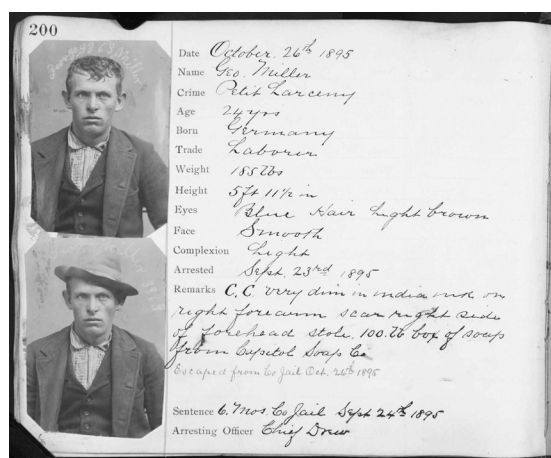 200
Date October. 26th 1895
Name Geo. Miller
Crime Petit Larceny
Age 24 yrs
Born Germany
Trade Laborer
Weight 185 lbs
Height 5ft 11½ in
Eyes Blue Hair Light brown
Face Smooth
Complexion Light
Arrested Sept. 23rd 1895
Remarks C.C. very dim in india ink on
right forearm scar right side
of forehead stole. 100. lb box of soap
from Capitol Soap Co
Escaped from Co Jail Oct. 26th 1895
Sentence 6. Mos. Co Jail Sept 24th 1895
Arresting Officer Chief Drew